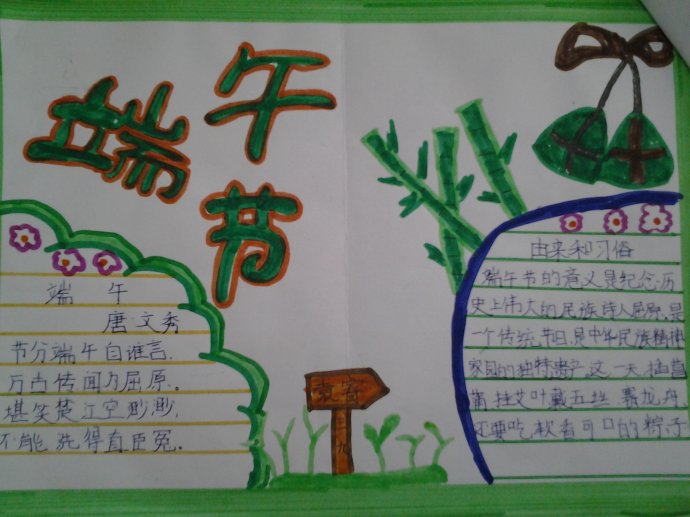 端午节
端 午
唐·文秀
节分端午自谁言,
万古传闻为屈原。
堪笑楚江空渺渺,
不能洗得直臣冤。
由来和习俗
端午节的意义是纪念历
史上伟大的民族诗人屈原,是
一个传统节日,是中华民族精神
家园的独特遗产,这一天 插菖
蒲,挂艾叶戴五丝 赛龙舟,
还要吃软香可口的粽子
三
九